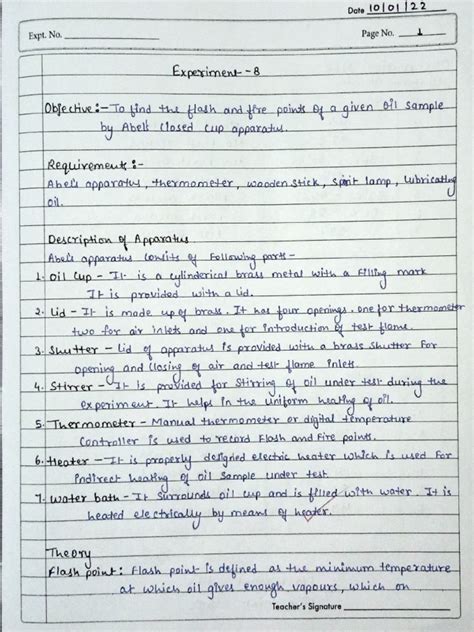 Date 10/01/22
Expt. No.
Page No. 1
Experiment-8
Objective:- To find the flash and fire points of a given oil sample
by Abel's closed cup apparatus.
Requirements:-
Abel's apparatus, thermometer, wooden stick, spirit lamp, lubricating
oil.
Description of Apparatus
Abel's apparatus consits of following parts-
1. Oil Cup - It is a cylinderical brass metal with a filling mark
It is provided with a lid.
2. Lid - It is made up of brass. It has four openings, one for thermometer
two for air inlets and one for introduction of test flame.
3. Shutter - Lid of apparatus is provided with a brass shutter for
opening and closing of air and test flame inlets.
4. Stirrer - It is provided for stirring of oil under test during the
experiment. It helps in the uniform heating of oil.
5. Thermometer - Manual thermometer or digital temperature
controller is used to record flash and fire points.
6. Heater - It is properly designed electric heater which is used for
indirect heating of oil sample under test
7. Water bath - It surrounds oil cup and is filled with water. It is
heated electrically by means of heater.
Theory
Flash point: Flash point is defined as the minimum temperature
at which oil gives enough vapours, which on
Teacher's Signature